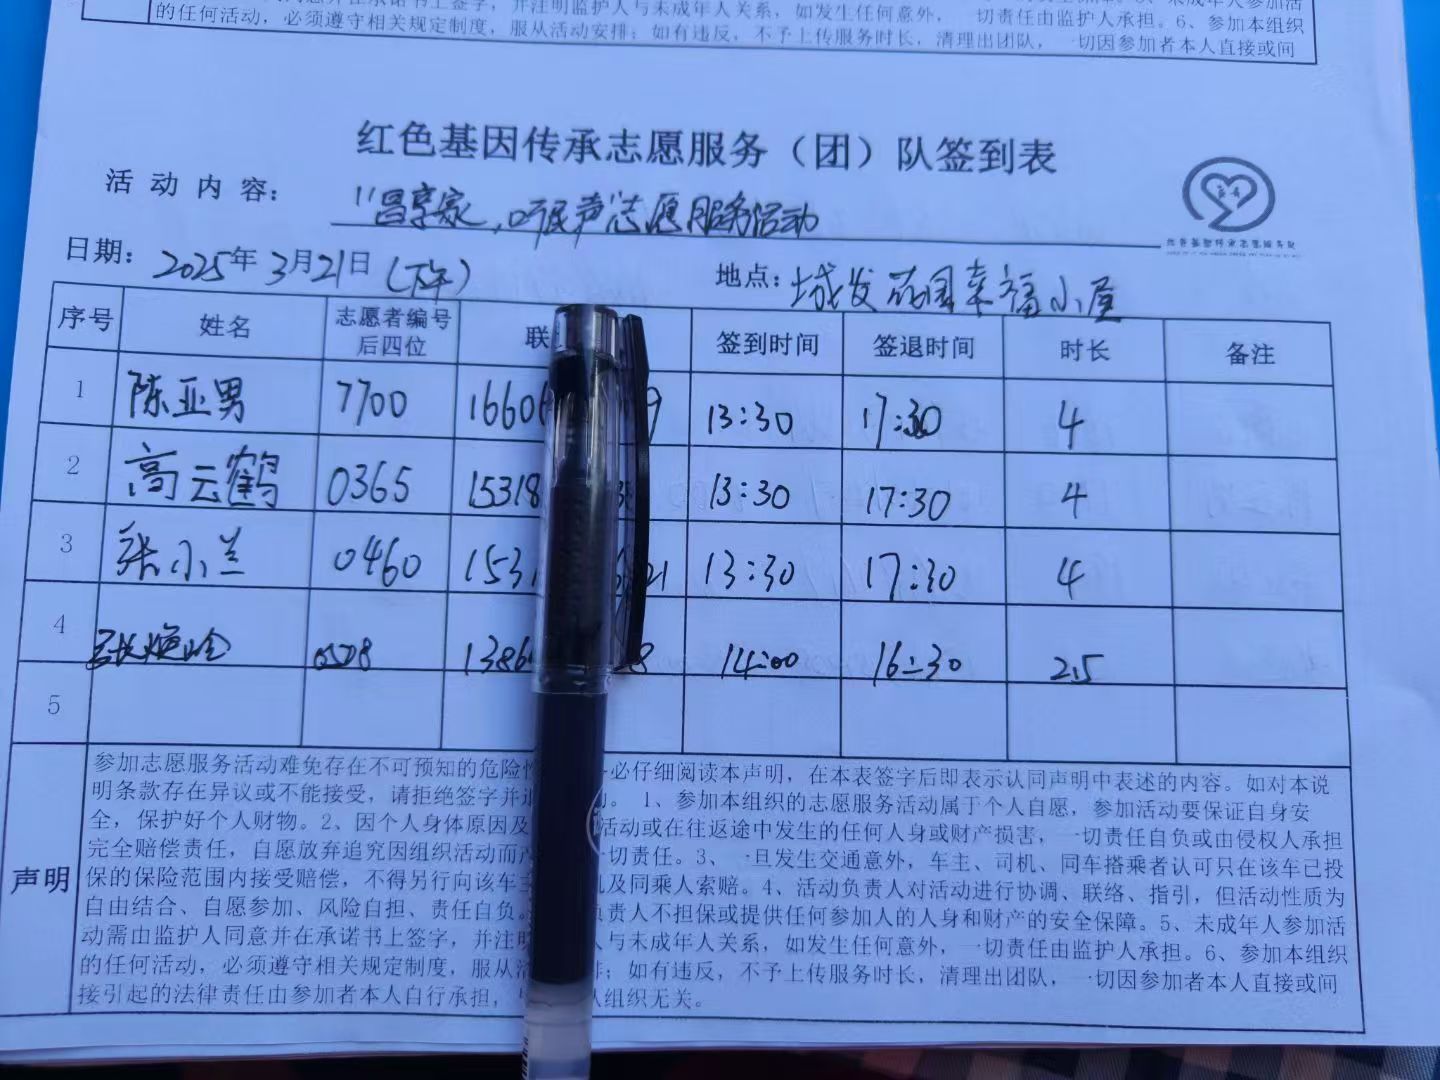 的任何活动，必须遵守相关规定制度，服从活动安排；如有违反，不予上传服务时长，清理出团队，一切因参加者本人直接或间
红色基因传承志愿服务（团）队签到表
活动内容： "昌享家，听民声"志愿服务活动
日期：2025年3月21日（下午） 地点：城发花园幸福小屋
序号 姓名 志愿者编号后四位 联 签到时间 签退时间 时长 备注
1 陈亚男 7700 1660 9 13:30 17:30 4
2 高云鹤 0365 15318 13:30 17:30 4
3 张小兰 0460 1531 21 13:30 17:30 4
4 0528 1386 8 14:00 16:30 2.5
5
声明
参加志愿服务活动难免存在不可预知的危险 必仔细阅读本声明，在本表签字后即表示认同声明中表述的内容。如对本说
明条款存在异议或不能接受，请拒绝签字并 。1、参加本组织的志愿服务活动属于个人自愿，参加活动要保证自身安
全，保护好个人财物。2、因个人身体原因及 活动或在往返途中发生的任何人身或财产损害，一切责任自负或由侵权人承担
完全赔偿责任，自愿放弃追究因组织活动而 一切责任。3、一旦发生交通意外，车主、司机、同车搭乘者认可只在该车已投
保的保险范围内接受赔偿，不得另行向该车 及同乘人索赔。4、活动负责人对活动进行协调、联络、指引，但活动性质为
自由结合、自愿参加、风险自担、责任自负。 负责人不担保或提供任何参加人的人身和财产的安全保障。5、未成年人参加活
动需由监护人同意并在承诺书上签字，并注 人与未成年人关系，如发生任何意外，一切责任由监护人承担。6、参加本组织
的任何活动，必须遵守相关规定制度，服从 排；如有违反，不予上传服务时长，清理出团队，一切因参加者本人直接或间
接引起的法律责任由参加者本人自行承担， 组织无关。